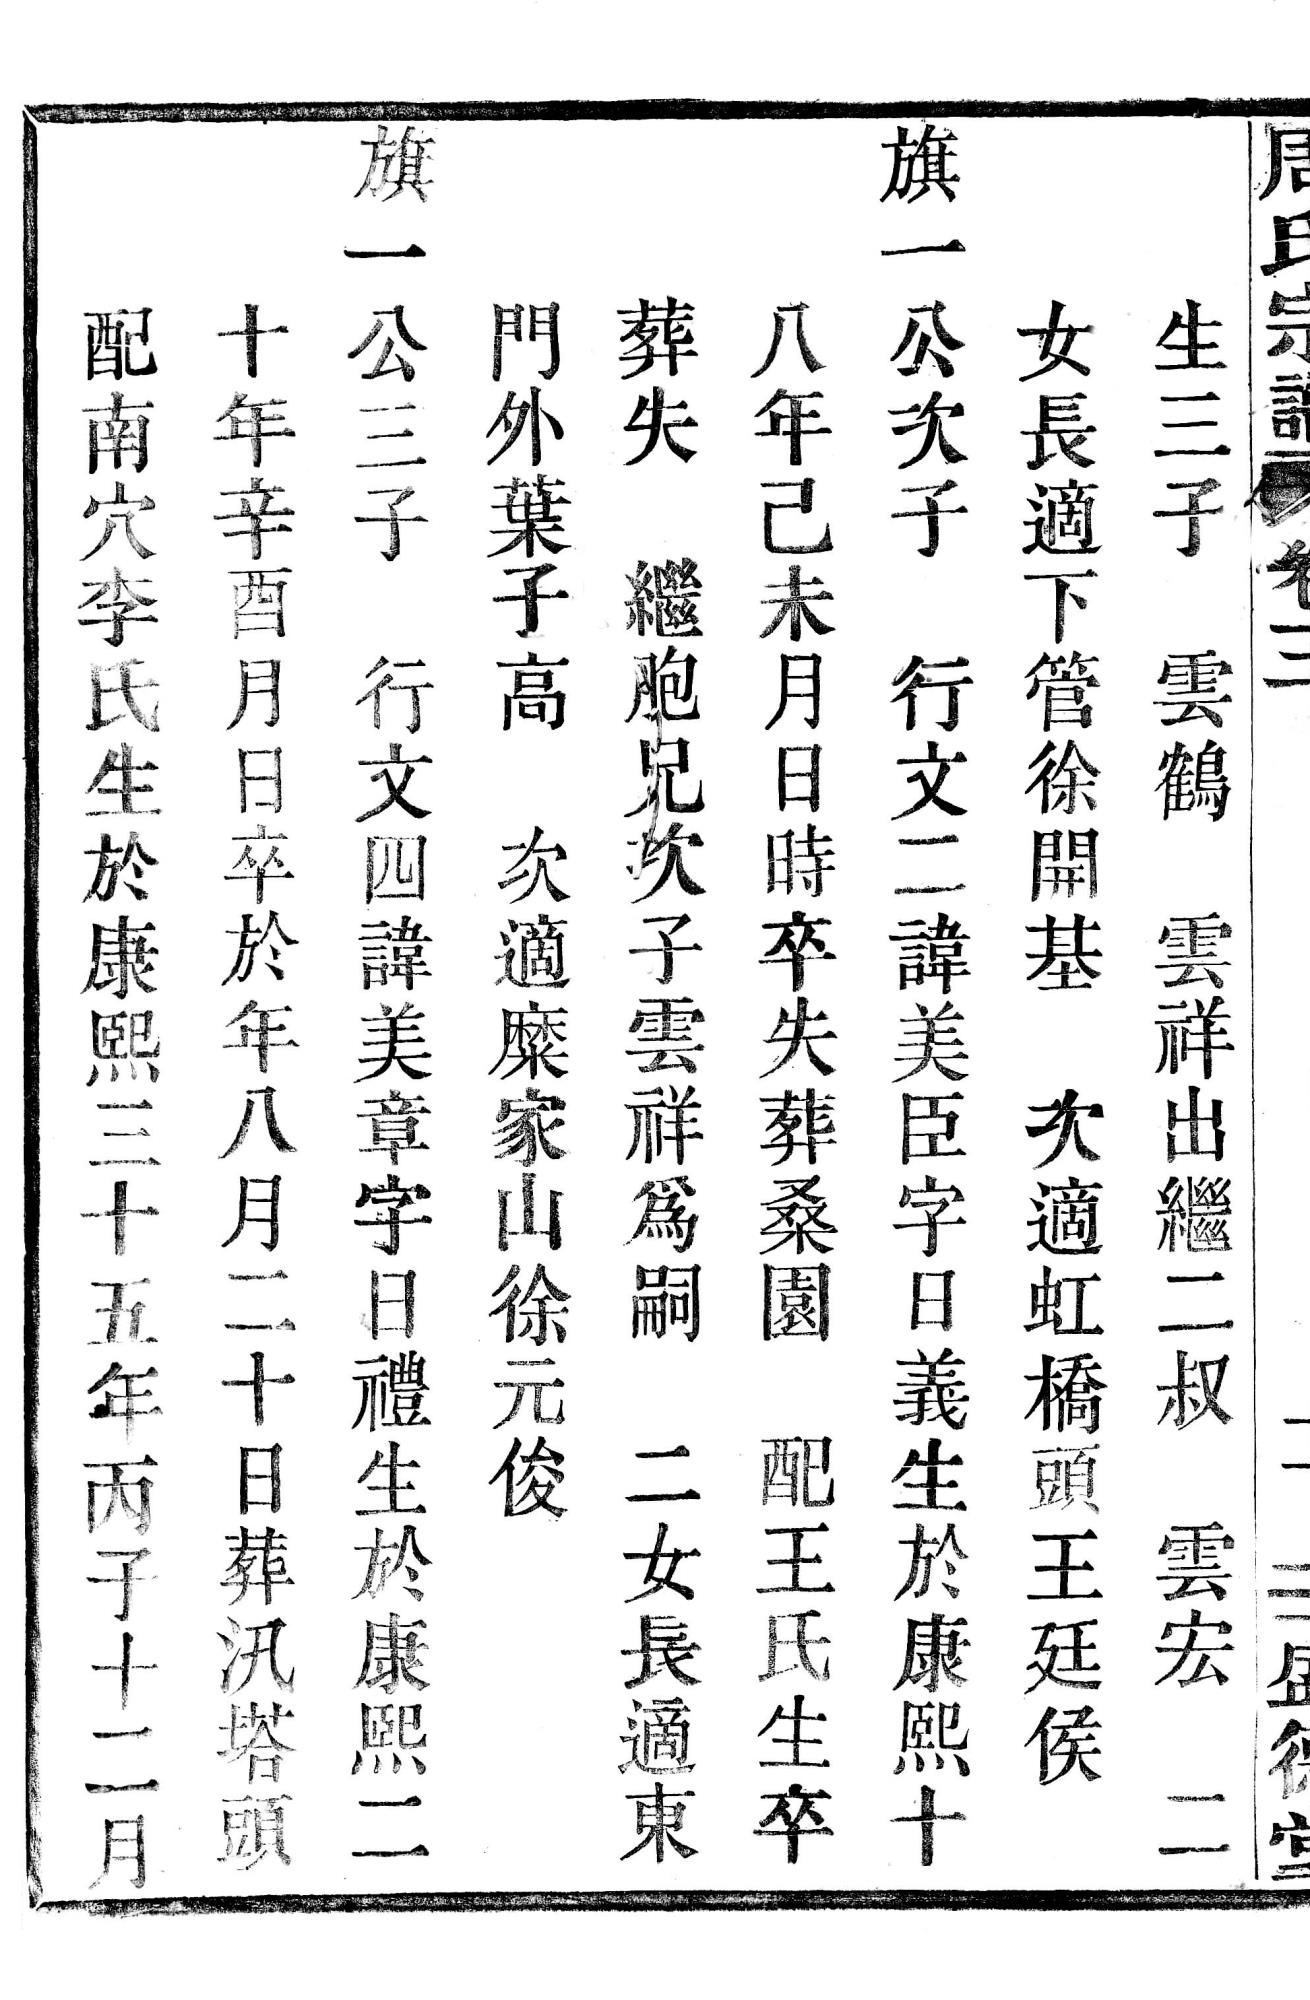 周氏宗譜 卷三 盛德堂
生三子 雲鶴 雲祥出繼二叔 雲宏 二
女長適下管徐開基 次適虹橋頭王廷侯
旗一公次子 行文二諱美臣字日義生於康熙十
八年己未月日時卒失葬桑園 配王氏生卒
葬失 繼胞兄次子雲祥爲嗣 二女長適東
門外葉子高 次適糜家山徐元俊
旗一公三子 行文四諱美章字日禮生於康熙二
十年辛酉月日卒於年八月二十日葬汛塔頭
配南穴李氏生於康熙三十五年丙子十二月